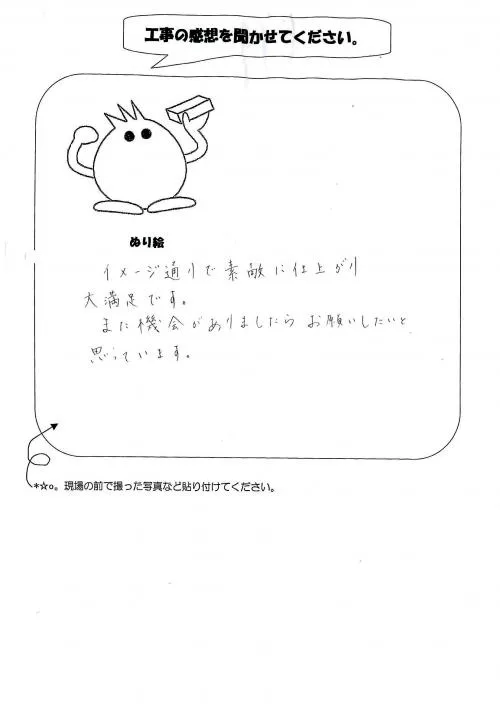 工事の感想を聞かせてください。
ぬり絵
イメージ通りで素敵に仕上がり
大満足です。
また機会がありましたらお願いしたいと
思っています。
*☆o。現場の前で撮った写真など貼り付けてください。